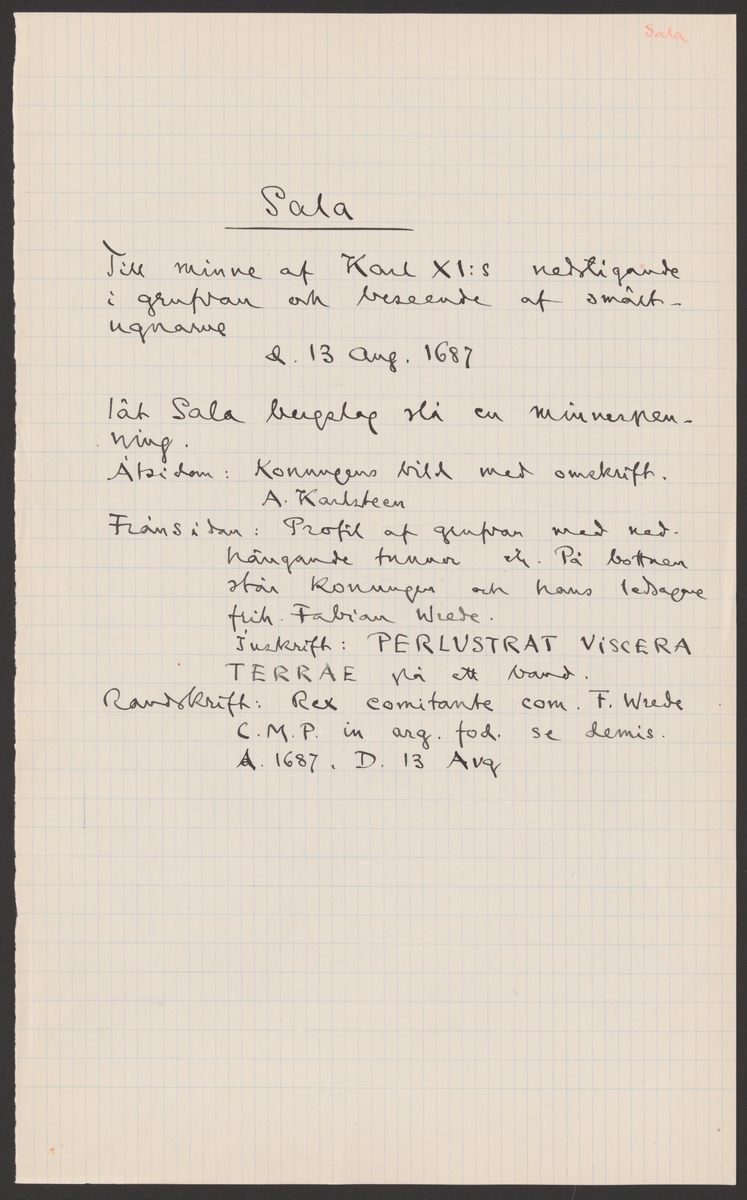 Sala
Sala
Till minne af Karl XI:s nedstigande
i grufvan och beseende af smält-
ugnarne
d. 13 Aug. 1687
lät Sala bergslag slå en minnespen-
ning.
Åtsidan: Konungens bild med omskrift.
A. Karlsteen
Frånsidan: Profil af grufvan med ned-
hängande tunnor etc. På bottnen
står konungen och hans ledsagare
frih. Fabian Wrede.
Inskrift: PERLUSTRAT VISCERA
TERRAE på ett band.
Randskrift: Rex comitante com. F. Wrede
C.M.P. in arg. fod. se demis.
A. 1687. D. 13 Aug